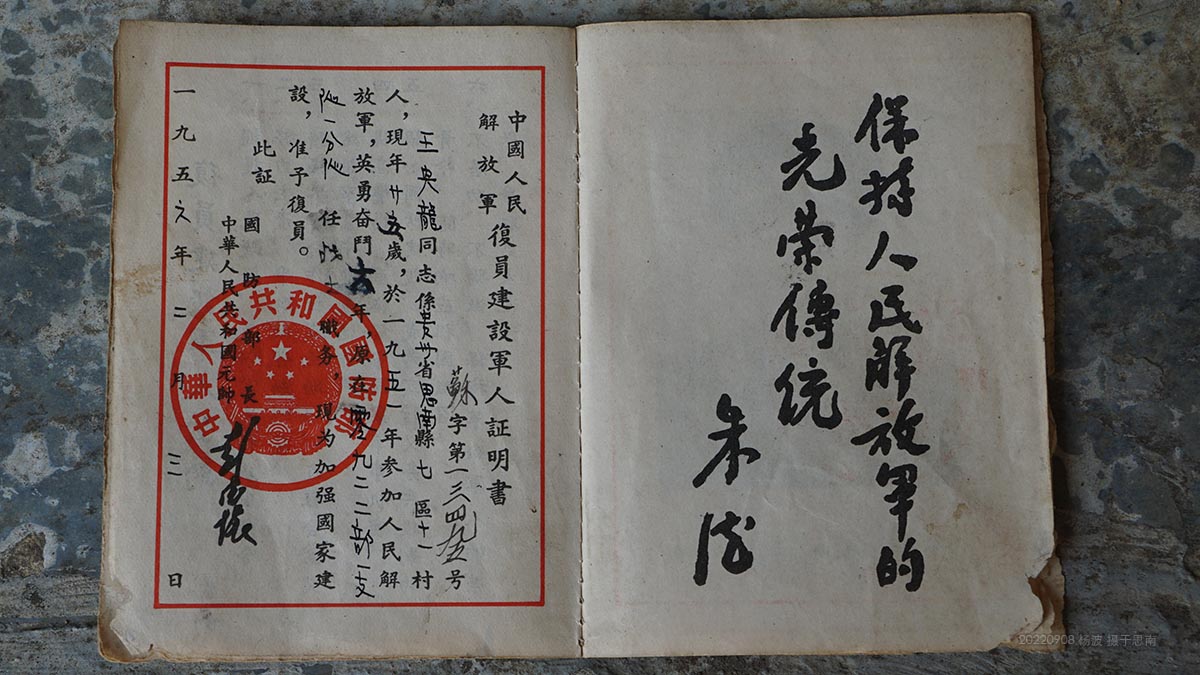 保持人民解放軍的
光荣傳统
朱德
中國人民
解放軍
復員建設軍人証明書
蘇字第一三四九五号
王央龍同志係贵州省思南縣七區十一村
人，現年廿五歲，於一九五一年参加人民解
放軍，英勇奮鬥六年，原在零九二二部一支
队一分队任战士職务，現为加强國家建
設，准予復員。
此証
國防部長
中華人民共和國元帥
彭德懷
一九五六年二月三日
中華人民共和國國防部
20220908 杨波 摄于思南